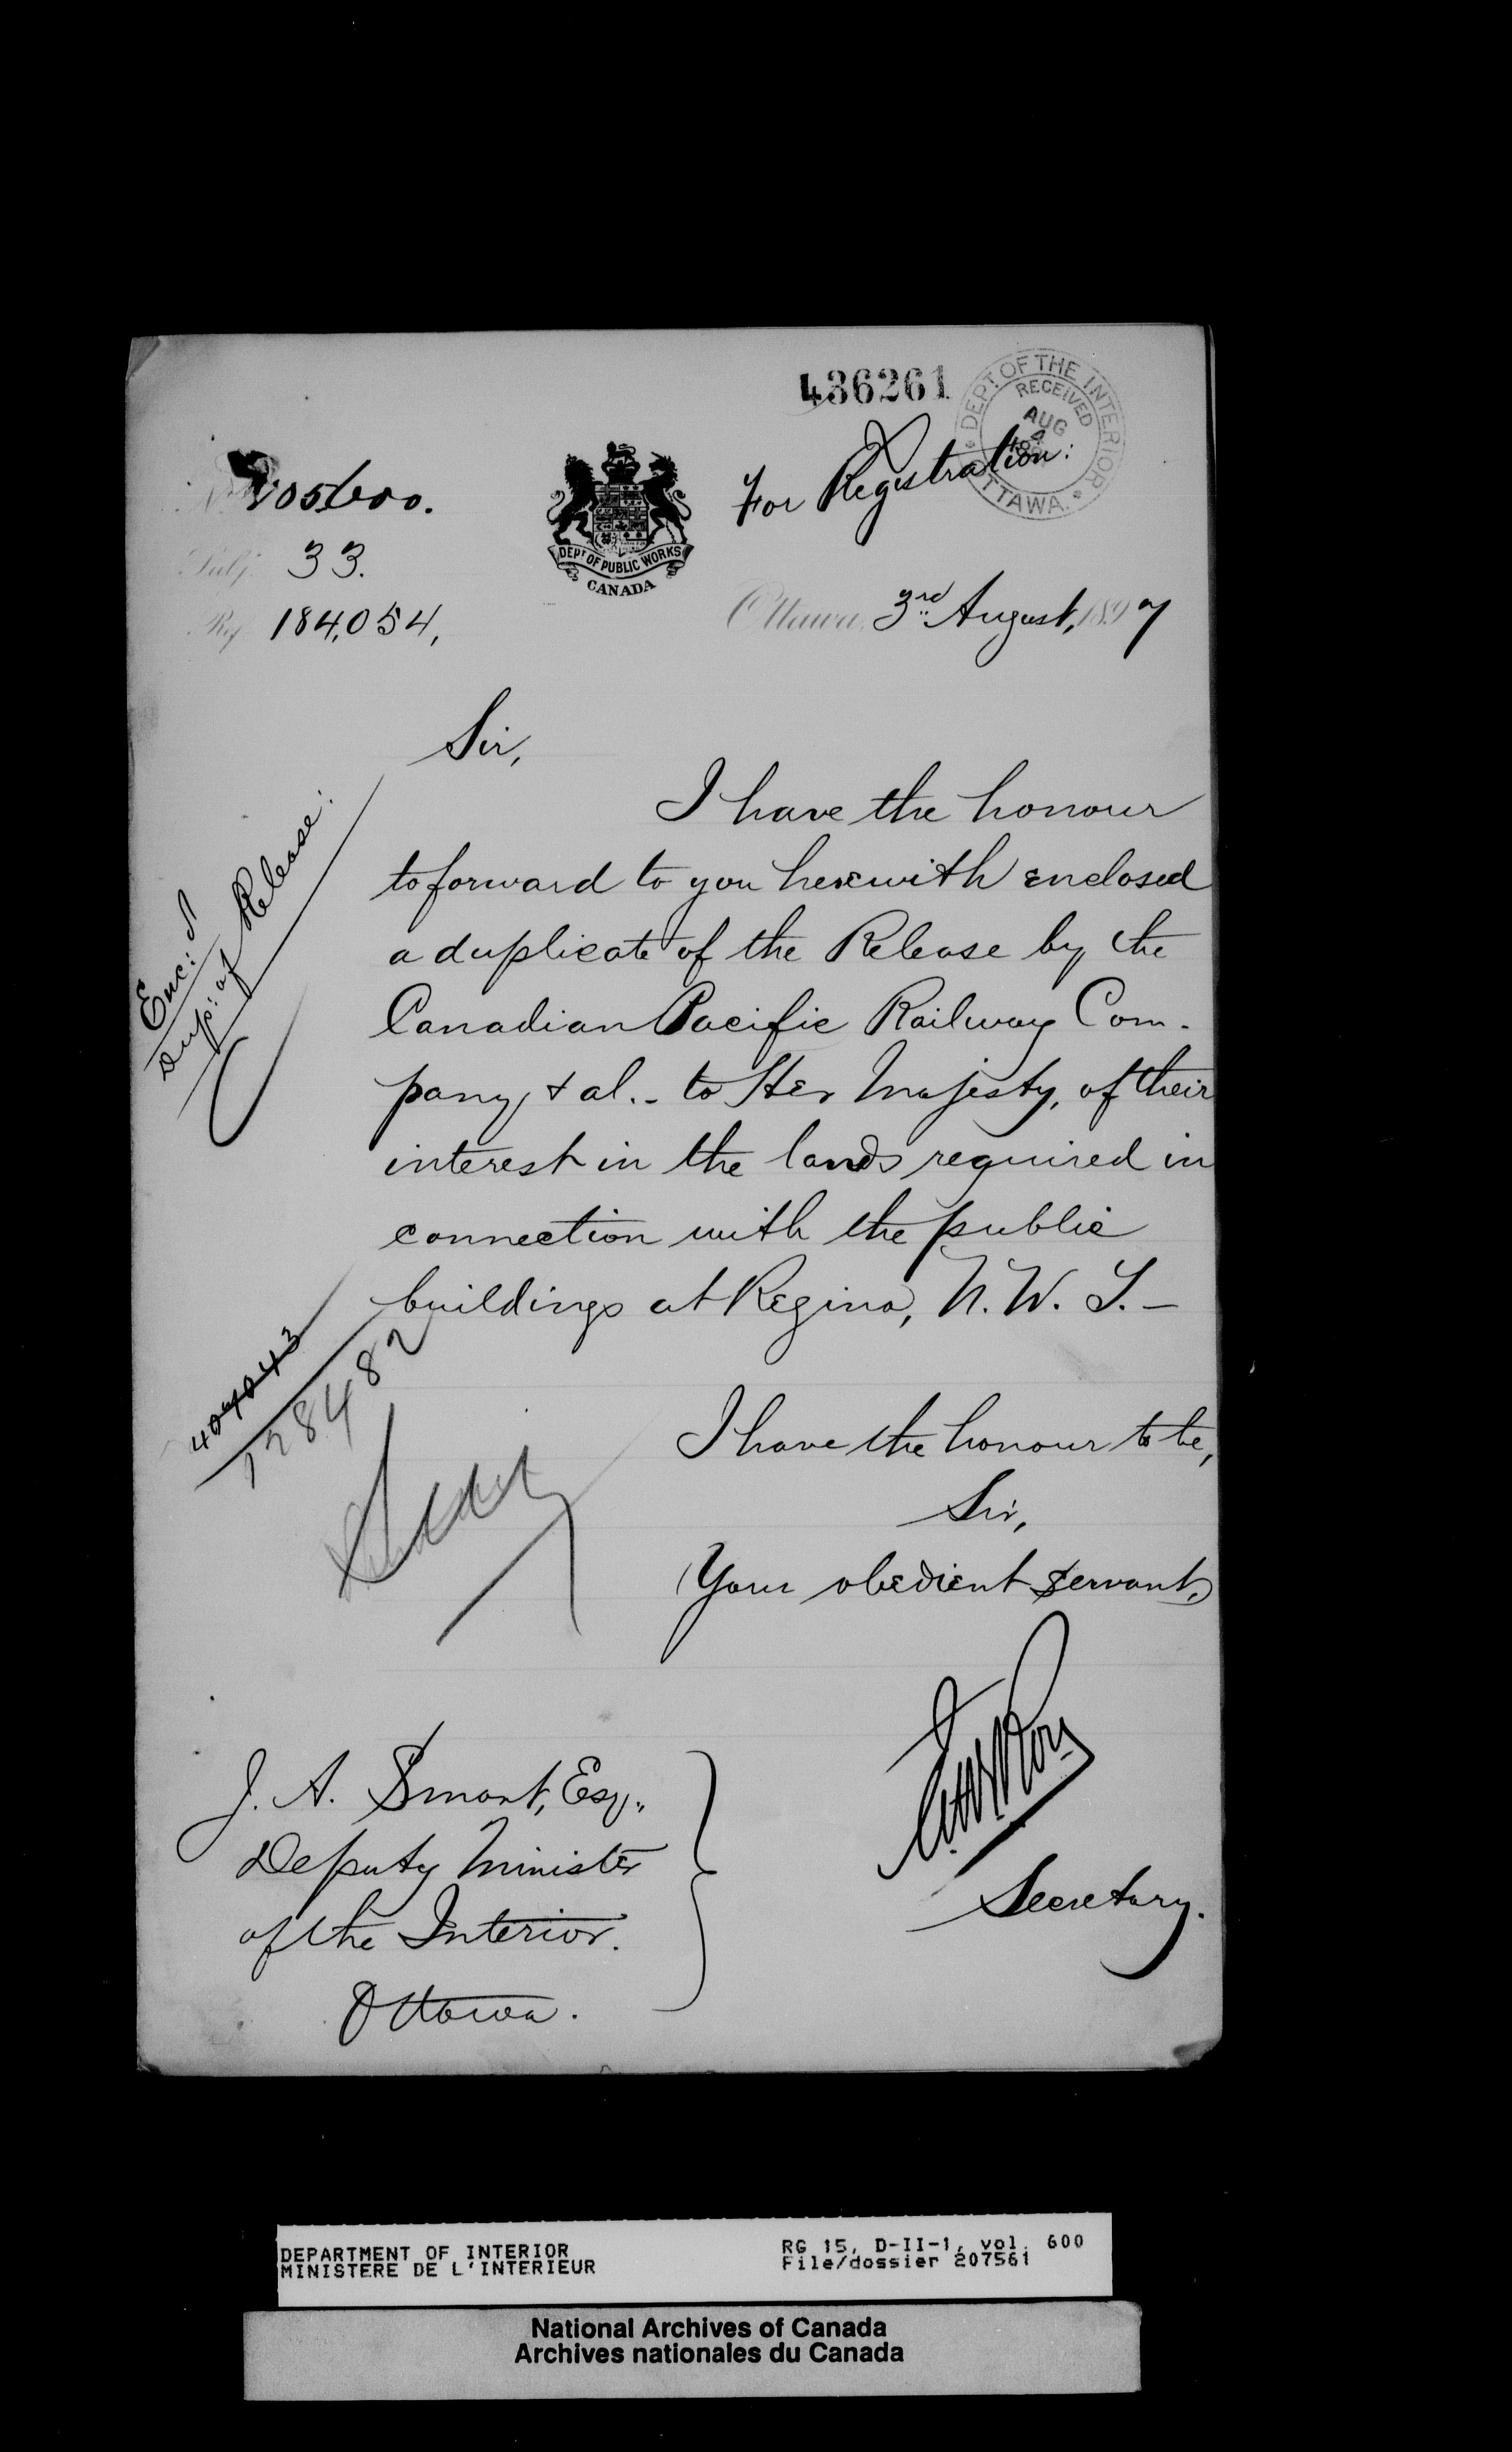 436261
DEPT. OF THE INTERIOR
RECEIVED
AUG
4
OTTAWA
For Registration:
205600.
Subj. 33.
Ref. 184,054,
DEPT OF PUBLIC WORKS
CANADA
Ottawa, 3rd August, 1897
Sir,
I have the honour
to forward to you herewith enclosed
a duplicate of the Release by the
Canadian Pacific Railway Com-
pany & al. - to Her Majesty, of their
interest in the lands required in
connection with the public
buildings at Regina, N. W. T. -
Enc: 1
Dup: of Release:
407043
128482
I have the honour to be,
Sir,
Your obedient servant,
Roy
Secretary.
J. A. Smart, Esq.,
Deputy Minister
of the Interior.
Ottawa.
DEPARTMENT OF INTERIOR
MINISTERE DE L'INTERIEUR
RG 15, D-II-1, vol. 600
File/dossier 207561
National Archives of Canada
Archives nationales du Canada